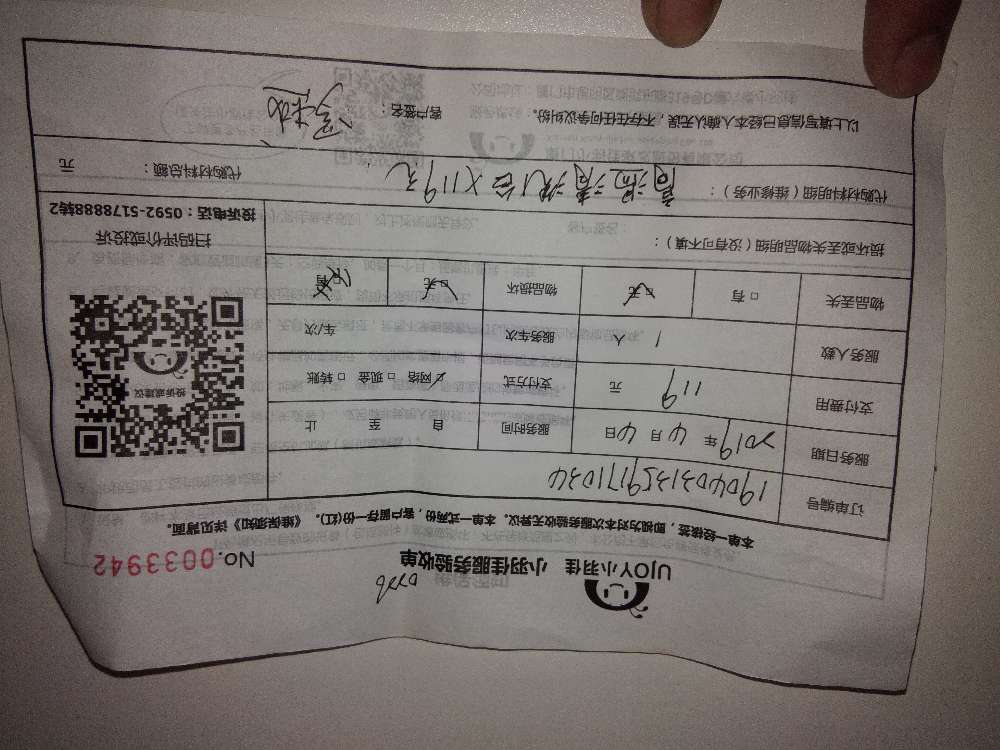 UJOY小羽佳 小羽佳服务验收单
No.0033942
本单一经核签，即视为对本次服务验收无异议。本单一式两份，客户留存一份(红)。《维保须知》详见背面。
订单编号 190403135917103
服务日期 2019 年 4 月 4 日 服务时间 自 至 止
支付费用 119 元 支付方式 网络 □ 现金 □ 转账
服务人数 1 人 服务车次 车次
物品丢失 □ 有 □ 无 物品损坏 □ 无 □ 有
投诉或建议
扫码评价或投诉
投诉电话：0592-5178888转2
损坏或丢失物品明细（没有可不填）：
代购材料明细（维修业务）： 高温清洗1台×119元
代购材料总额： 元
以上填写信息已经本人确认无误，不存在任何争议纠纷。 客户签名：